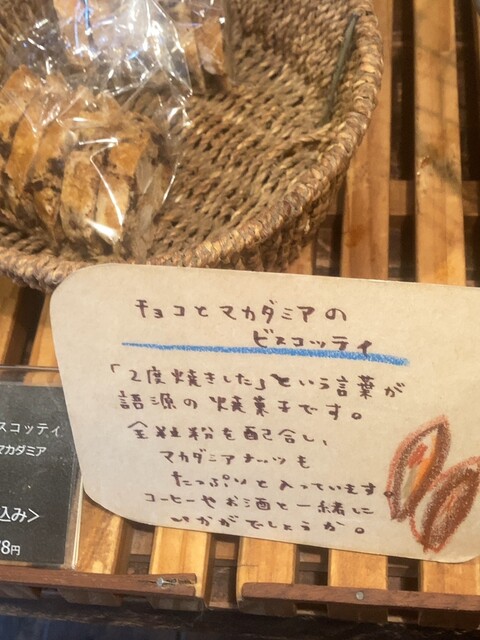 チョコとマカダミアの
ビスコッティ
「2度焼きした」という言葉が
語源の焼菓子です。
全粒粉を配合し、
マカダミアナッツも
たっぷりと入っています。
コーヒーやお酒と一緒に
いかがでしょうか。
スコッティ
マカダミア
込み>
8円